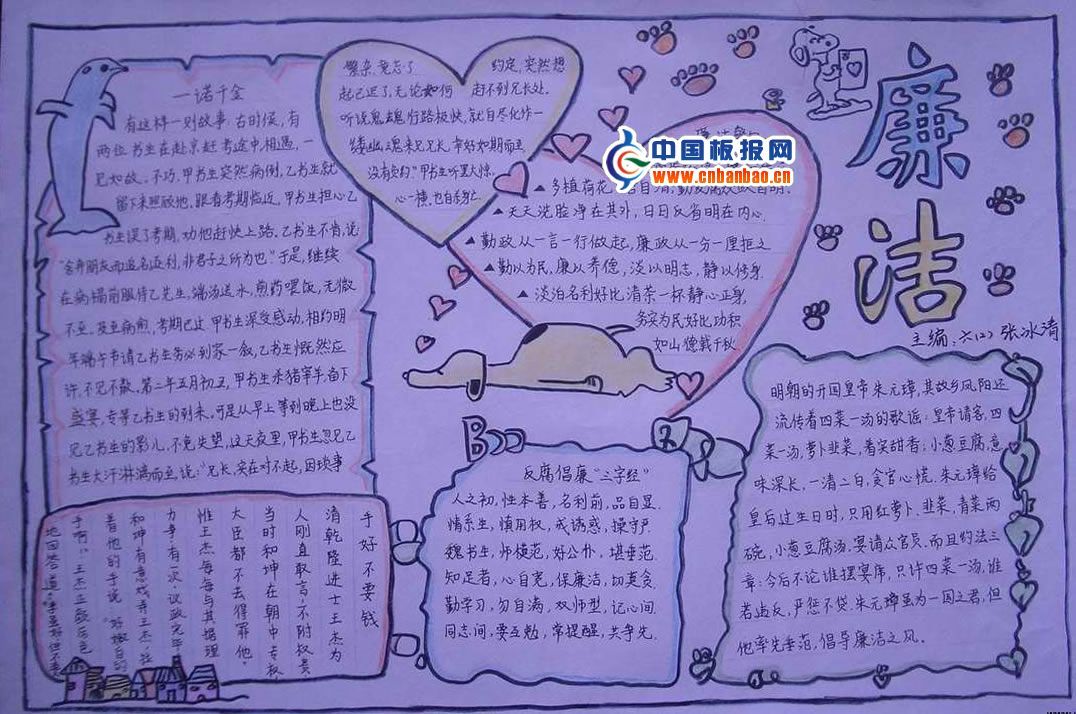 廉洁
主编:六(2)张冰清
一诺千金
有这样一则故事:古时候,有
两位书生在赴京赶考途中,相遇,一
见如故、不巧,甲书生突然病倒,乙书生就
留下来照顾他,眼看考期临近,甲书生担心乙
书生误了考期,劝他赶快上路,乙书生不肯,说:
“舍弃朋友而追名逐利,非君子之所为也”于是,继续
在病榻前服侍乙先生,端汤送水,煎药喂饭,无微
不至,及至病愈,考期已过,甲书生深受感动,相约明
年端午节请乙书生务必到家一叙,乙书生慨然应
许,不见不散。第二年五月初五,甲书生杀猪宰羊,备下
盛宴,专等乙书生的到来,可是从早上等到晚上也没
见乙书生的影儿,不免失望,这天夜里,甲书生忽见乙
书生大汗淋漓而至,说:“兄长,实在对不起,因琐事
繁杂,竟忘了约定,突然想
起已迟了,无论如何赶不到兄长处。
听说鬼魂行路极快,就自尽化作一
缕幽魂来见兄长,幸好如期而至,
没有失约”甲书生听罢大惊,
心一横,也自刎
▲多植荷花
▲天天洗脸净在其外,日日反省明在内心,
▲勤政从一言一行做起,廉政从一分一厘拒之
▲勤以为民,廉以养德,淡以明志,静以修身
▲淡泊名利好比清茶一杯静心正身,
务实为民好比功积
如山德载千秋
手好不要钱
清乾隆进士王杰为
人刚直敢言,不附权贵
当时和坤在朝中专权
大臣都不去得罪他,
惟王杰每每与其据理
力争,有一次,议政完毕
和坤有意戏弄王杰,拉
着他的手说:“好嫩白的
手啊!”王杰正颜厉色
地回答道:“手虽好但不要
反腐倡廉“三字经”
人之初,性本善,名利前,品自显.
情系生,慎用权,戒诱惑,操守严
魏书生,师模范,好公仆,堪垂范
知足者,心自宽,保廉洁,切莫贪
勤学习,勿自满,双师型,记心间,
同志间,要互勉,常提醒,共争先
明朝的开国皇帝朱元璋,其故乡凤阳还
流传着四菜一汤的歌谣:皇帝请客,四
菜一汤,萝卜韭菜,着实甜香;小葱豆腐,意
味深长,一清二白,贪官心慌。朱元璋给
皇后过生日时,只用红萝卜、韭菜,青菜两
碗,小葱豆腐汤,宴请众官员,而且约法三
章:今后不论谁摆宴席,只许四菜一汤,谁
若违反,严惩不贷,朱元璋虽为一国之君,但
他率先垂范,倡导廉洁之风。
中国板报网
www.cnbanbao.cn